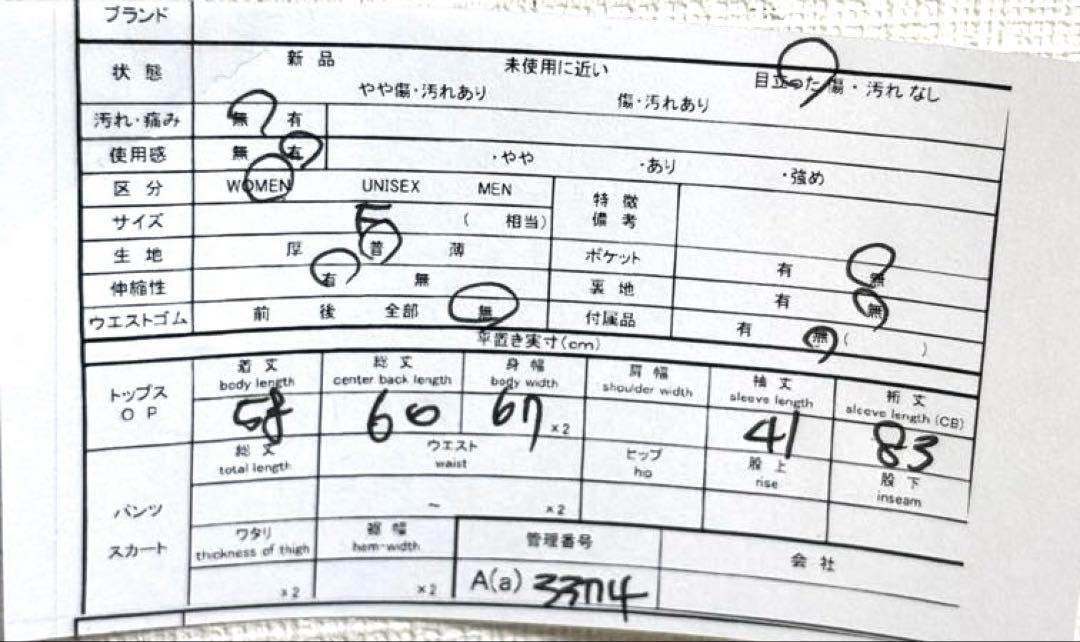 ブランド
状態 新品 未使用に近い 目立った傷・汚れなし
やや傷・汚れあり 傷・汚れあり
汚れ・痛み 無 有
使用感 無 有 ・やや ・あり ・強め
区分 WOMEN UNISEX MEN 特徴
備考
サイズ ( 相当)
生地 厚 普 薄 ポケット 有 無
伸縮性 有 無 裏地 有 無
ウエストゴム 前 後 全部 無 付属品 有 無 ( )
平置き実寸(cm)
トップス
OP
着丈 総丈 身幅 肩幅 袖丈 裄丈
body length center back length body width shoulder width sleeve length sleeve length (CB)
58 60 67 ×2 41 83
パンツ
スカート
総丈 ウエスト ヒップ 股上 股下
total length waist hip rise inseam
~ ×2
ワタリ 裾幅 管理番号 会社
thickness of thigh hem-width
×2 ×2 A(a) 3374